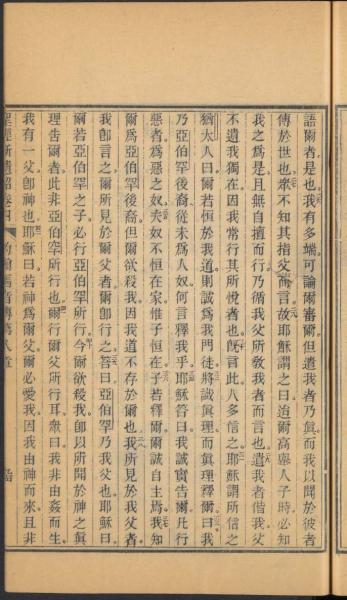 語爾者是也我有多端可論爾審爾但遣我者乃眞而我以聞於彼者
傳於世也衆不知其指父而言故耶穌謂之曰迨爾高舉人子時必知
我之爲是且無自擅而行乃循我父所敎我者而言也遣我者偕我父
不遺我獨在因我常行其所悅者也旣言此人多信之耶穌謂所信之
猶太人曰爾若恒於我道則誠爲我門徒將識眞理而眞理釋爾曰我
乃亞伯罕後裔從未爲人奴何言釋我乎耶穌答曰我誠實吿爾凡行
惡者爲惡之奴夫奴不恒在家惟子恒在子若釋爾爾誠自主焉我知
爾爲亞伯罕後裔但爾欲殺我因我道不存於爾也我所見於我父者
我卽言之爾所見於爾父者爾卽行之曰亞伯罕乃我父也耶穌曰
爾若亞伯罕之子必行亞伯罕所行今爾欲殺我卽以所聞於神之眞
理吿爾者此非亞伯罕所行也爾行爾父所行耳衆曰我非由姦而生
我有一父卽神也耶穌曰若神爲爾父爾必愛我因我由神而來且非
聖經新遺詔卷四 約翰福音傳第八章